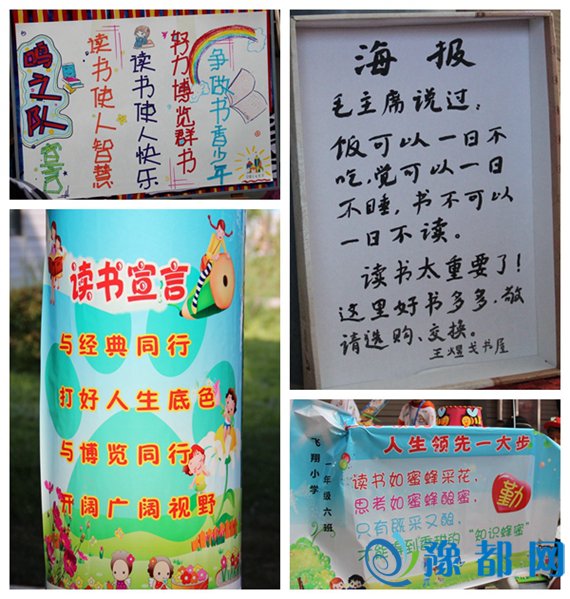 鸣之队
宣言
读书使人智慧
读书使人快乐
努力博览群书
争做书香少年
海报
毛主席说过：
饭可以一日不
吃，觉可以一日
不睡，书不可以
一日不读。
读书太重要了！
这里好书多多，敬
请选购、交换。
王煜戈书屋
读书宣言
与经典同行
打好人生底色
与博览同行
开阔广阔视野
飞翔小学
一年级六班
人生领先一大步
读书如蜜蜂采花，
思考如蜜蜂酿蜜，
只有既采又酿，
才能得到香甜的“知识蜂蜜”
勤
豫都网